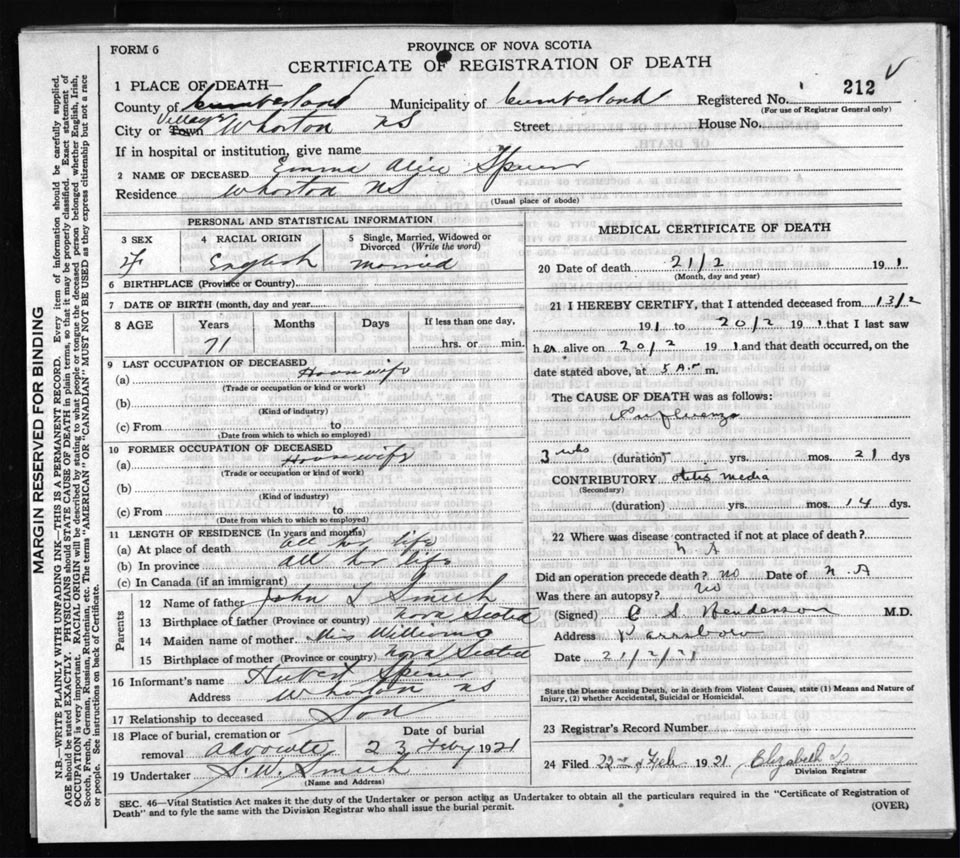 FORM 6
PROVINCE OF NOVA SCOTIA
CERTIFICATE OF REGISTRATION OF DEATH
1 PLACE OF DEATH—
County of Cumberland Municipality of Cumberland Registered No. 212
(For use of Registrar General only)
City or Town Village Wharton NS Street House No.
If in hospital or institution, give name
2 NAME OF DECEASED Emma Alice Spicer
Residence Wharton NS
(Usual place of abode)
PERSONAL AND STATISTICAL INFORMATION
3 SEX 4 RACIAL ORIGIN 5 Single, Married, Widowed or Divorced (Write the word)
F English Married
6 BIRTHPLACE (Province or Country)
7 DATE OF BIRTH (month, day and year)
8 AGE Years Months Days If less than one day,
71 hrs. or min.
9 LAST OCCUPATION OF DECEASED
(a) Housewife
(Trade or occupation or kind of work)
(b)
(Kind of industry)
(c) From to
(Date from which to which so employed)
10 FORMER OCCUPATION OF DECEASED
(a) Housewife
(Trade or occupation or kind of work)
(b)
(Kind of industry)
(c) From to
(Date from which to which so employed)
11 LENGTH OF RESIDENCE (In years and months)
(a) At place of death all her life
(b) In province all her life
(c) In Canada (if an immigrant)
Parents
12 Name of father John L Smith
13 Birthplace of father (Province or country) Nova Scotia
14 Maiden name of mother Miss Williams
15 Birthplace of mother (Province or country) Nova Scotia
16 Informant's name Hubert Spicer
Address Wharton NS
17 Relationship to deceased Son
18 Place of burial, cremation or removal Advocate Date of burial 23 Feby 1921
19 Undertaker S. W. Smith
(Name and Address)
MEDICAL CERTIFICATE OF DEATH
20 Date of death 21/2 191
(Month, day and year)
21 I HEREBY CERTIFY, that I attended deceased from 13/2
191 to 20/2 191 that I last saw
her alive on 20/2 191 and that death occurred, on the
date stated above, at 5 A. m.
The CAUSE OF DEATH was as follows:
Influenza
3 wks (duration) yrs. mos. 21 dys
CONTRIBUTORY otitis media
(Secondary)
(duration) yrs. mos. 14 dys.
22 Where was disease contracted if not at place of death?
N A
Did an operation precede death? no Date of N. A
Was there an autopsy? No
(Signed) C S Henderson M.D.
Address Parrsboro
Date 21/2/21
State the Disease causing Death, or in death from Violent Causes, state (1) Means and Nature of Injury, (2) whether Accidental, Suicidal or Homicidal.
23 Registrar's Record Number
24 Filed 22nd Feb 1921 Elizabeth
Division Registrar
SEC. 46—Vital Statistics Act makes it the duty of the Undertaker or person acting as Undertaker to obtain all the particulars required in the "Certificate of Registration of
Death" and to fyle the same with the Division Registrar who shall issue the burial permit. (OVER)
MARGIN RESERVED FOR BINDING
N.B.—WRITE PLAINLY WITH UNFADING INK—THIS IS A PERMANENT RECORD. Every item of information should be carefully supplied.
AGE should be stated EXACTLY. PHYSICIANS should STATE CAUSE OF DEATH in plain terms, so that it may be properly classified. Exact statement of
OCCUPATION is very important. RACIAL ORIGIN will be described by stating to what people or tongue the deceased person belonged, whether English, Irish,
Scotch, French, German, Russian, Ruthenian, etc. The terms "AMERICAN" OR "CANADIAN" MUST NOT BE USED as they express citizenship but not a race
or people. See instructions on back of Certificate.